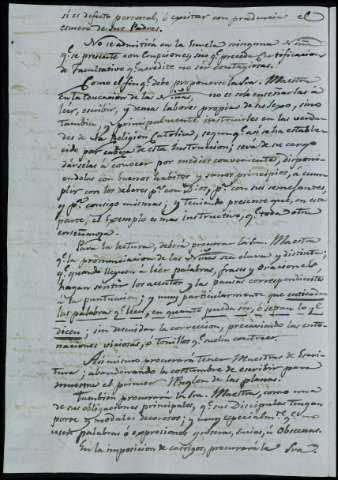 si es defecto personal, ó excitar con prudencia el
esmero de sus Padres.
No se admitirá en la Escuela ninguna Niña
q.e se presente con erupciones sin q.e preceda Certificacion
de Facultativo q.e acredite no ser contagiosas.
Como el fin q.e debe proponerse la Sra. Maestra
en la educacion de las Niñas, no es solo enseñarlas á
leer, escribir, y demas labores propias de su sexo, sino
tambien y principalmente instruirlas en las verda-
des de la Religion Catolica, segun q.e así se ha estable-
cido por cabeza de esta Instruccion; será de su cargo
dárselas á conocer por medios convenientes, disponien-
dolas con buenos habitos y sanos principios, a cum-
plir con los deberes p.a con Dios, p.a con sus semejantes,
y p.a consigo mismas; y teniendo presente que, en esta
parte, el Exemplo es mas instructivo, q.e toda otra
enseñanza.
Para la lectura, deberá procurar la Sra. Maestra
q.e la pronunciacion de las Niñas sea clara y distinta;
q.e quando lleguen á leer palabras, frases y oraciones lo
hagan sentir los acentos y las pausas correspondientes
á la puntuacion; y muy particularmente que entiendan
las palabras q.e leen, en quanto pueda ser, ó sepan lo q.e
dicen; sin descuidar la correccion, precaviendo las ento-
naciones viciosas, ó tonillos q.e suelen contraer.
Asi mismo procurará tener Muestras de Escri-
tura, abandonando la costumbre de escribir para
muestra el primer Renglon de las planas.
Tambien procurará la Sra. Maestra, como una
de sus obligaciones principales, q.e sus Discipulas tengan
porte y modales decorosos; y muy especialm.te q.e no
usen palabras ó expresiones groseras, sucias, ú Obscenas.
En la imposicion de castigos, procurará la Sra.